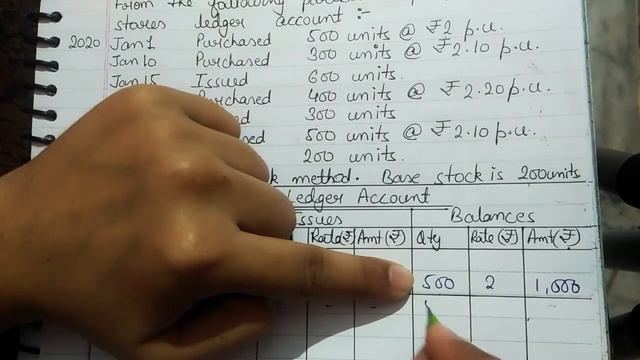 From the following
stores ledger account :-
2020 Jan 1 Purchased 500 units @ ₹2 p.u.
Jan 10 Purchased 300 units @ ₹2.10 p.u.
Jan 15 Issued 600 units.
400 units @ ₹2.20 p.u.
300 units
500 units @ ₹2.10 p.u.
200 units.
method. Base stock is 200 units
Ledger Account
Issues Balances
Rate(₹) Amt(₹) Qty Rate(₹) Amt(₹)
500 2 1,000